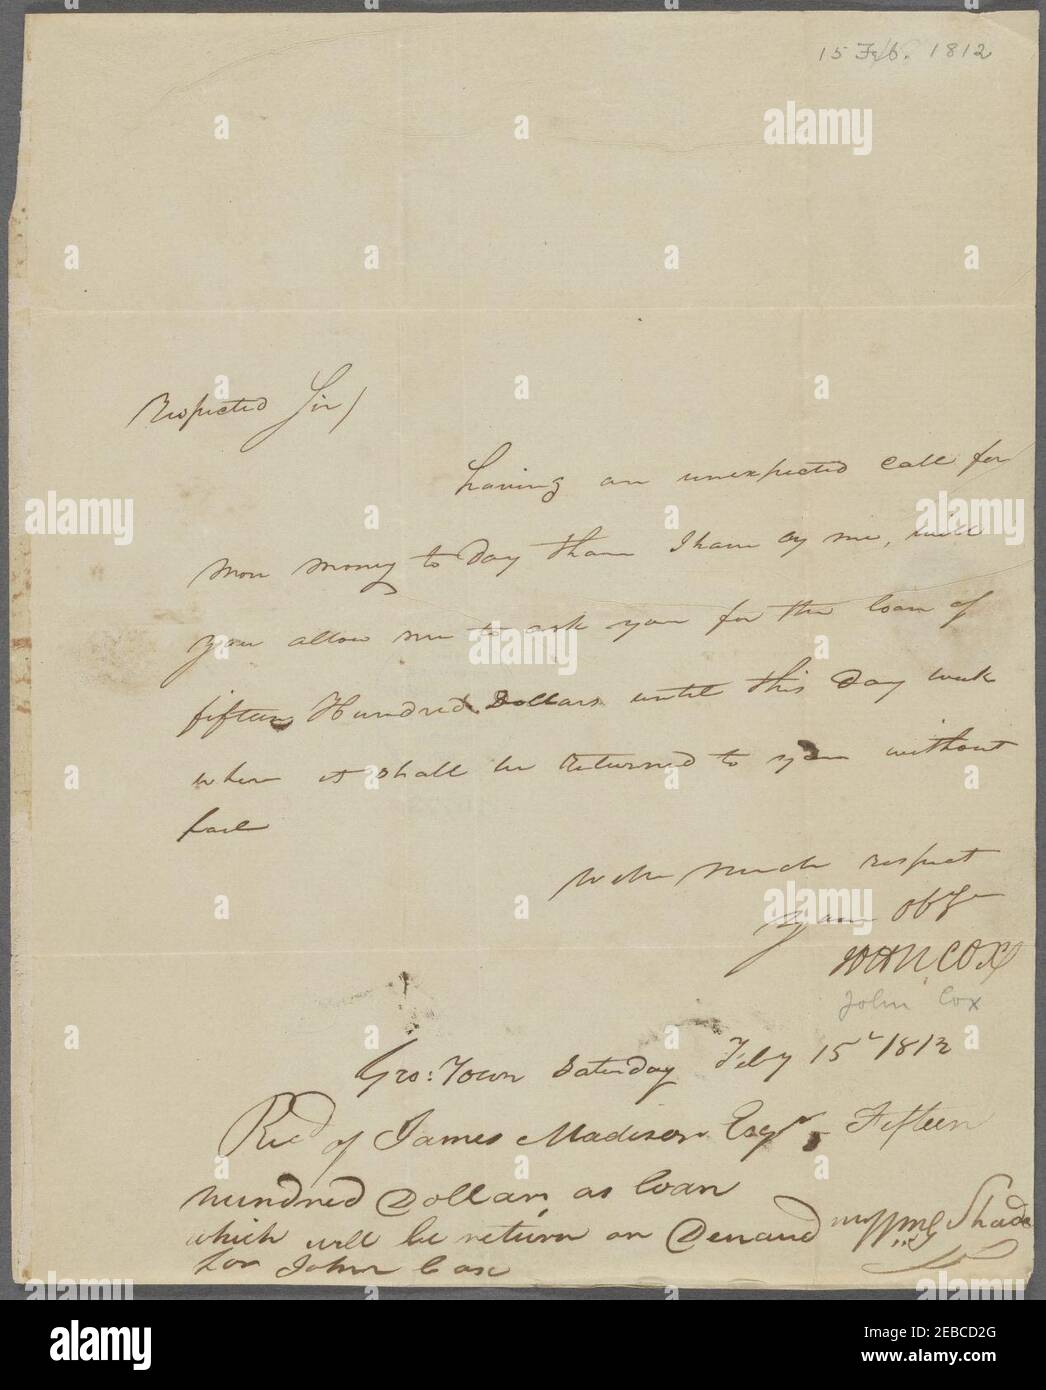 15 Feb. 1812
Respected Sir/
having an unexpected call for
more money to Day than I have by me, will
you allow me to ask you for the loan of
fifteen Hundred Dollars until this Day week
when it shall be returned to you without
fail
With much respect
yours Obt
JOHN COX
John Cox
Geo: Town Saturday Feby 15th 1812
Recd of James Madison Esqr Fifteen
hundred Dollars, as loan
which will be return on Demand
for John Cox
Shade
alamy
Image ID: 2EBCD2G
www.alamy.com